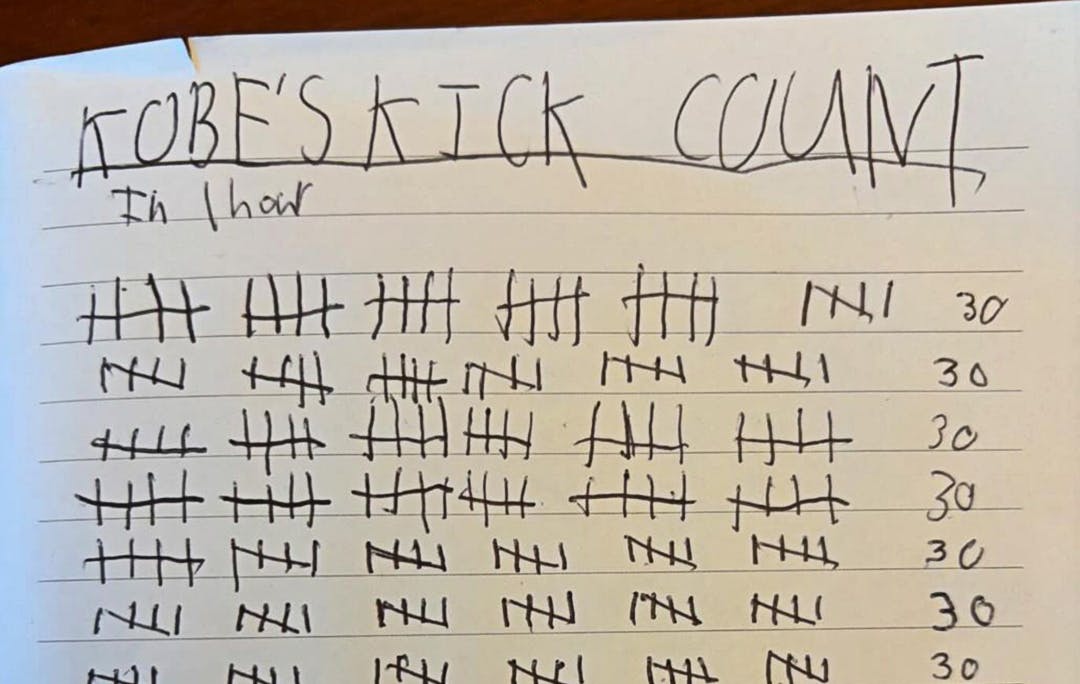 KOBE'S KICK COUNT
In 1 hour
30
30
30
30
30
30
30